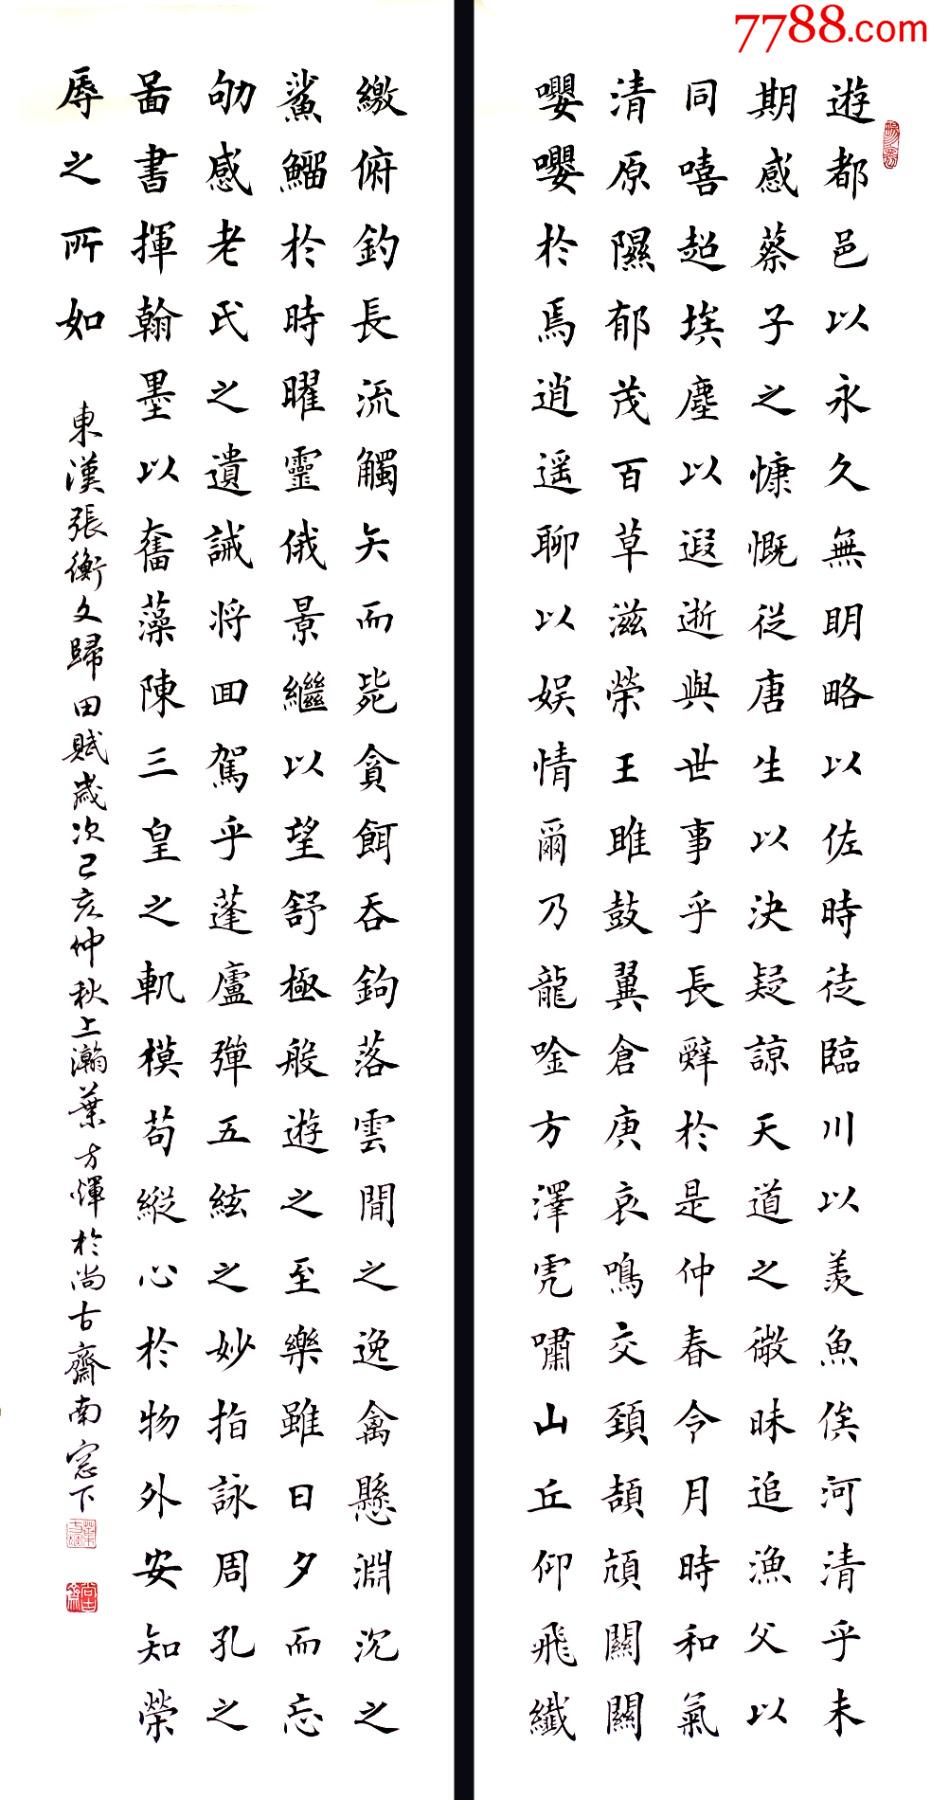 7788.com
遊都邑以永久無明略以佐時徒臨川以羨魚俟河清乎未
期感蔡子之慷慨從唐生以決疑諒天道之微昧追漁父以
同嘻超埃塵以遐逝與世事乎長辭於是仲春令月時和氣
清原隰郁茂百草滋榮王雎鼓翼倉庚哀鳴交頸頡頏關關
嚶嚶於焉逍遥聊以娱情爾乃龍唫方澤虎嘯山丘仰飛纖
繳俯釣長流觸矢而毙貪餌吞鉤落雲間之逸禽懸淵沉之
鯊鰡於時曜靈俄景繼以望舒極般遊之至樂雖日夕而忘
劬感老氏之遺誡將回駕乎蓬廬彈五絃之妙指詠周孔之
啚書揮翰墨以奮藻陳三皇之軌模苟縱心於物外安知榮
辱之所如
東漢張衡文歸田賦歲次己亥仲秋上瀚葉方煇於尚古齋南窓下